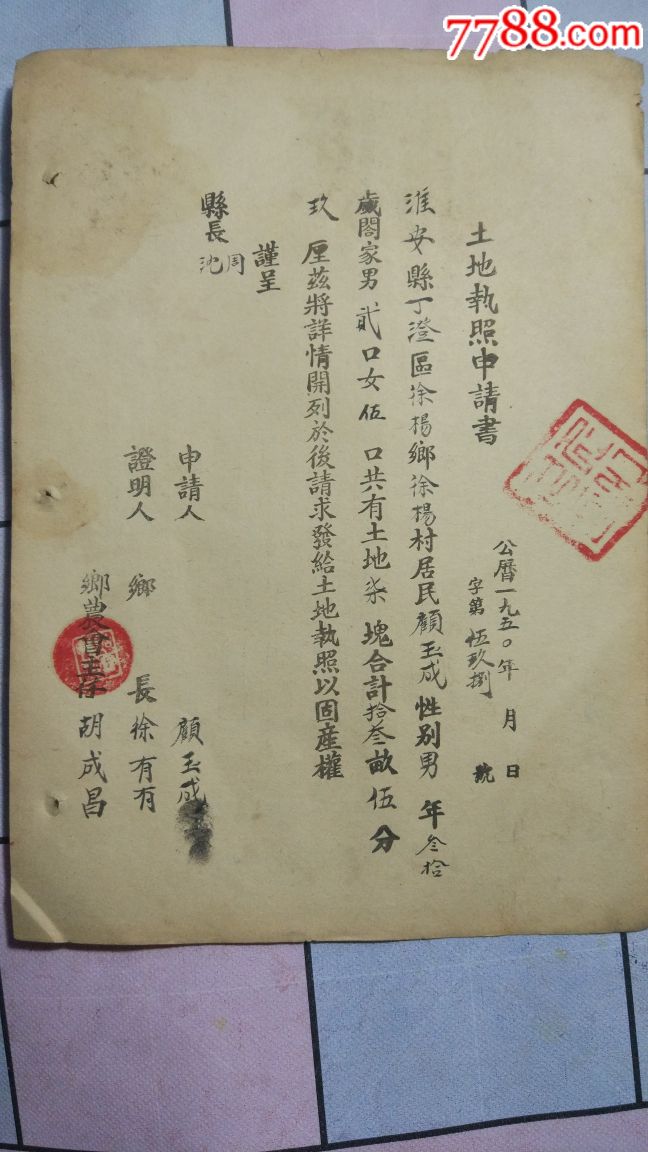 7788.com
公曆一九五〇年 月 日
字第伍玖捌 號
土地執照申請書
淮安縣丁澄區徐楊鄉徐楊村居民顧玉成性别男 年叁拾
歲閤家男貳口女伍口共有土地柒塊合計拾叁畝伍分
玖厘茲將詳情開列於後請求發給土地執照以固產權
謹呈
縣長 周
沈
申請人 顧玉成
證明人 鄉 長徐有有
鄉農會主任胡成昌